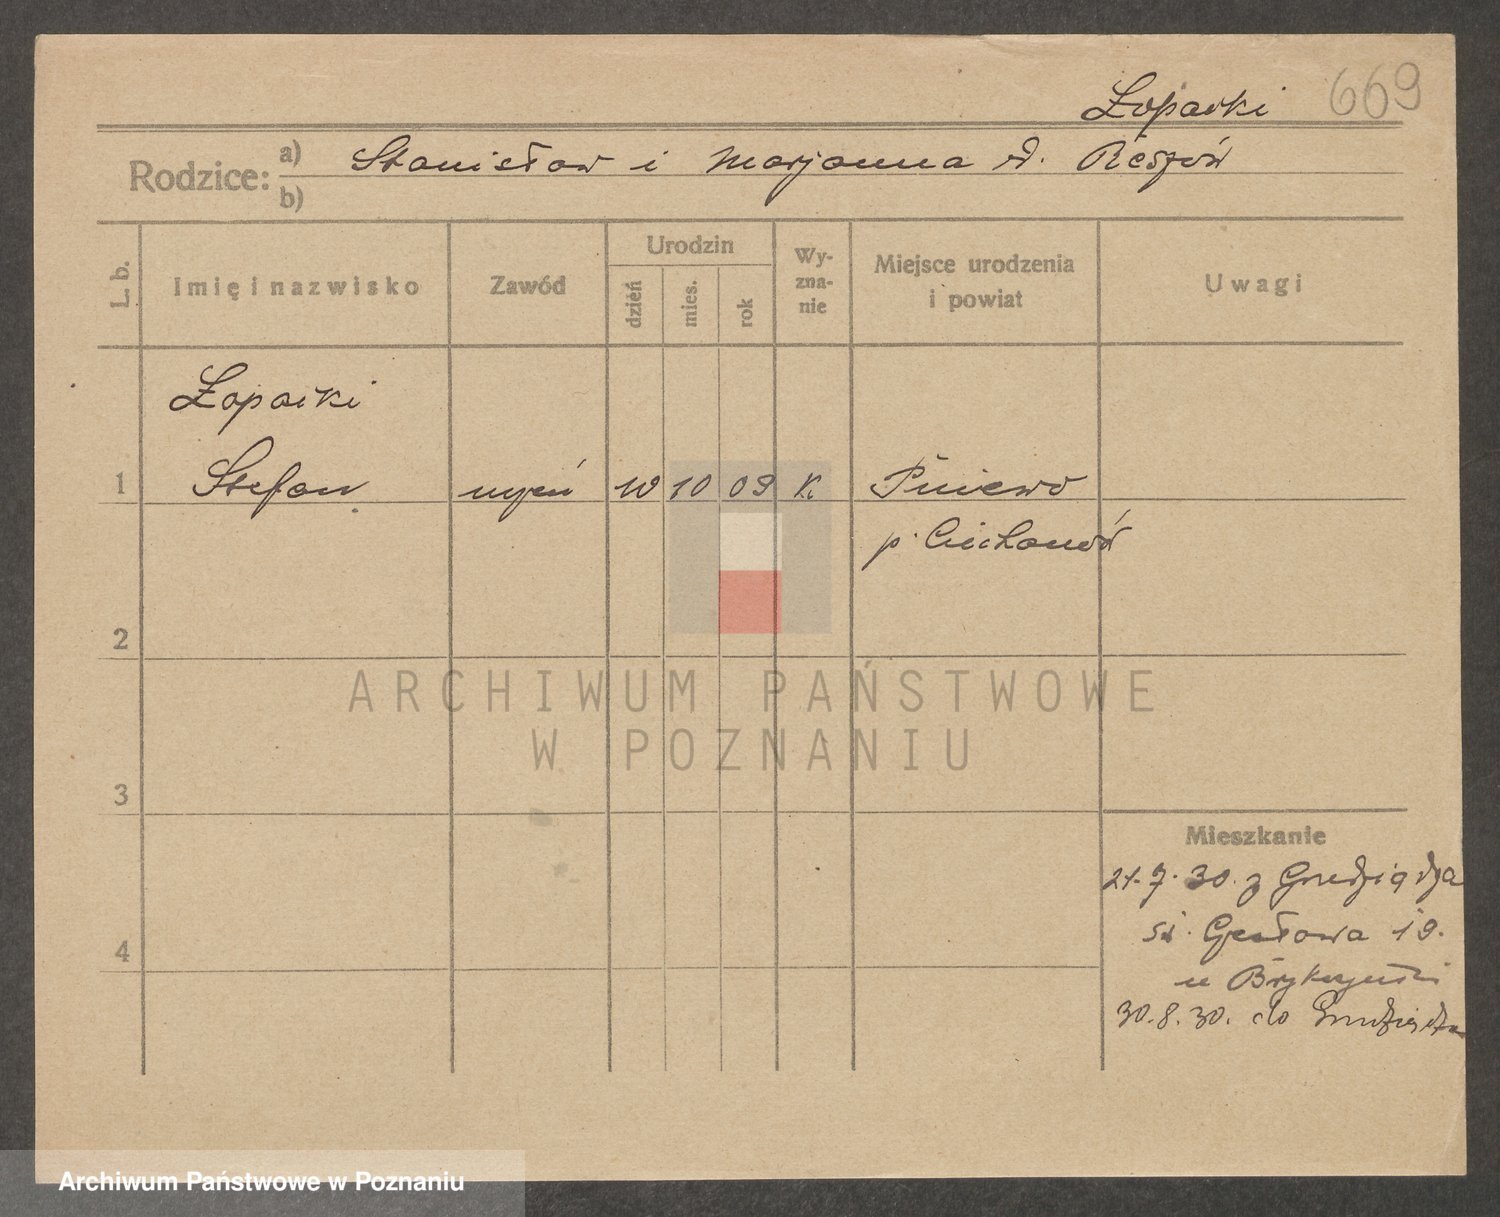 Łoparki 669
Rodzice: a) Stanisław i Marjanna d.
b)
L. b.
Imię i nazwisko
Zawód
Urodzin
dzień
mies.
rok
Wy-
zna-
nie
Miejsce urodzenia
i powiat
Uwagi
Łoparki
1 Stefan uczeń 10 10 09 K Pniewo
p. Ciechanów
2
3
4
Mieszkanie
21.7.30. z Grudziądza
19.
u
30.8.30. do Grudziądza
ARCHIWUM PAŃSTWOWE
W POZNANIU
Archiwum Państwowe w Poznaniu